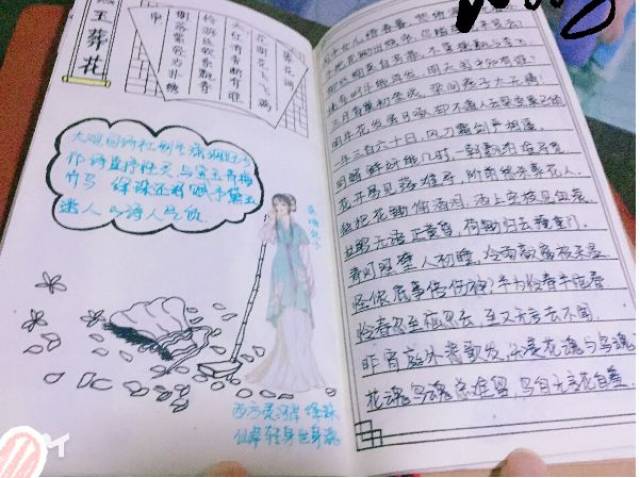 玉葬花
葬花词
花谢花飞飞满
天红消香断有谁
怜游丝软系飘春
榭落絮轻沾扑绣
帘
大观园诗社别号潇湘妃子
作诗直抒性灵 与宝玉青梅
竹马 还泪 赋予黛玉
迷人的诗人气质
西方灵河岸 绛珠
仙草
中女儿惜春暮
手把花锄出绣帘
柳丝榆荚自芳菲 不管桃飘与李飞
桃李明年能再发 明年闺中知有谁?
三月香巢初垒成 梁间燕子太无情!
明年花发虽可啄 却不道人去梁空巢已倾
一年三百六十日 风刀霜剑严相逼
明媚鲜妍能几时 一朝飘泊难寻觅
花开易见落难寻 阶前愁杀葬花人
独把花锄偷洒泪 洒上空枝见血痕
杜鹃无语正黄昏 荷锄归去掩重门
青灯照壁人初睡 冷雨敲窗被未温
怪侬底事倍伤神?半为怜春半恼春
怜春忽至恼忽去 至又无言去不闻
昨宵庭外悲歌发 知是花魂与鸟魂
花魂鸟魂总难留 鸟自无言花自羞